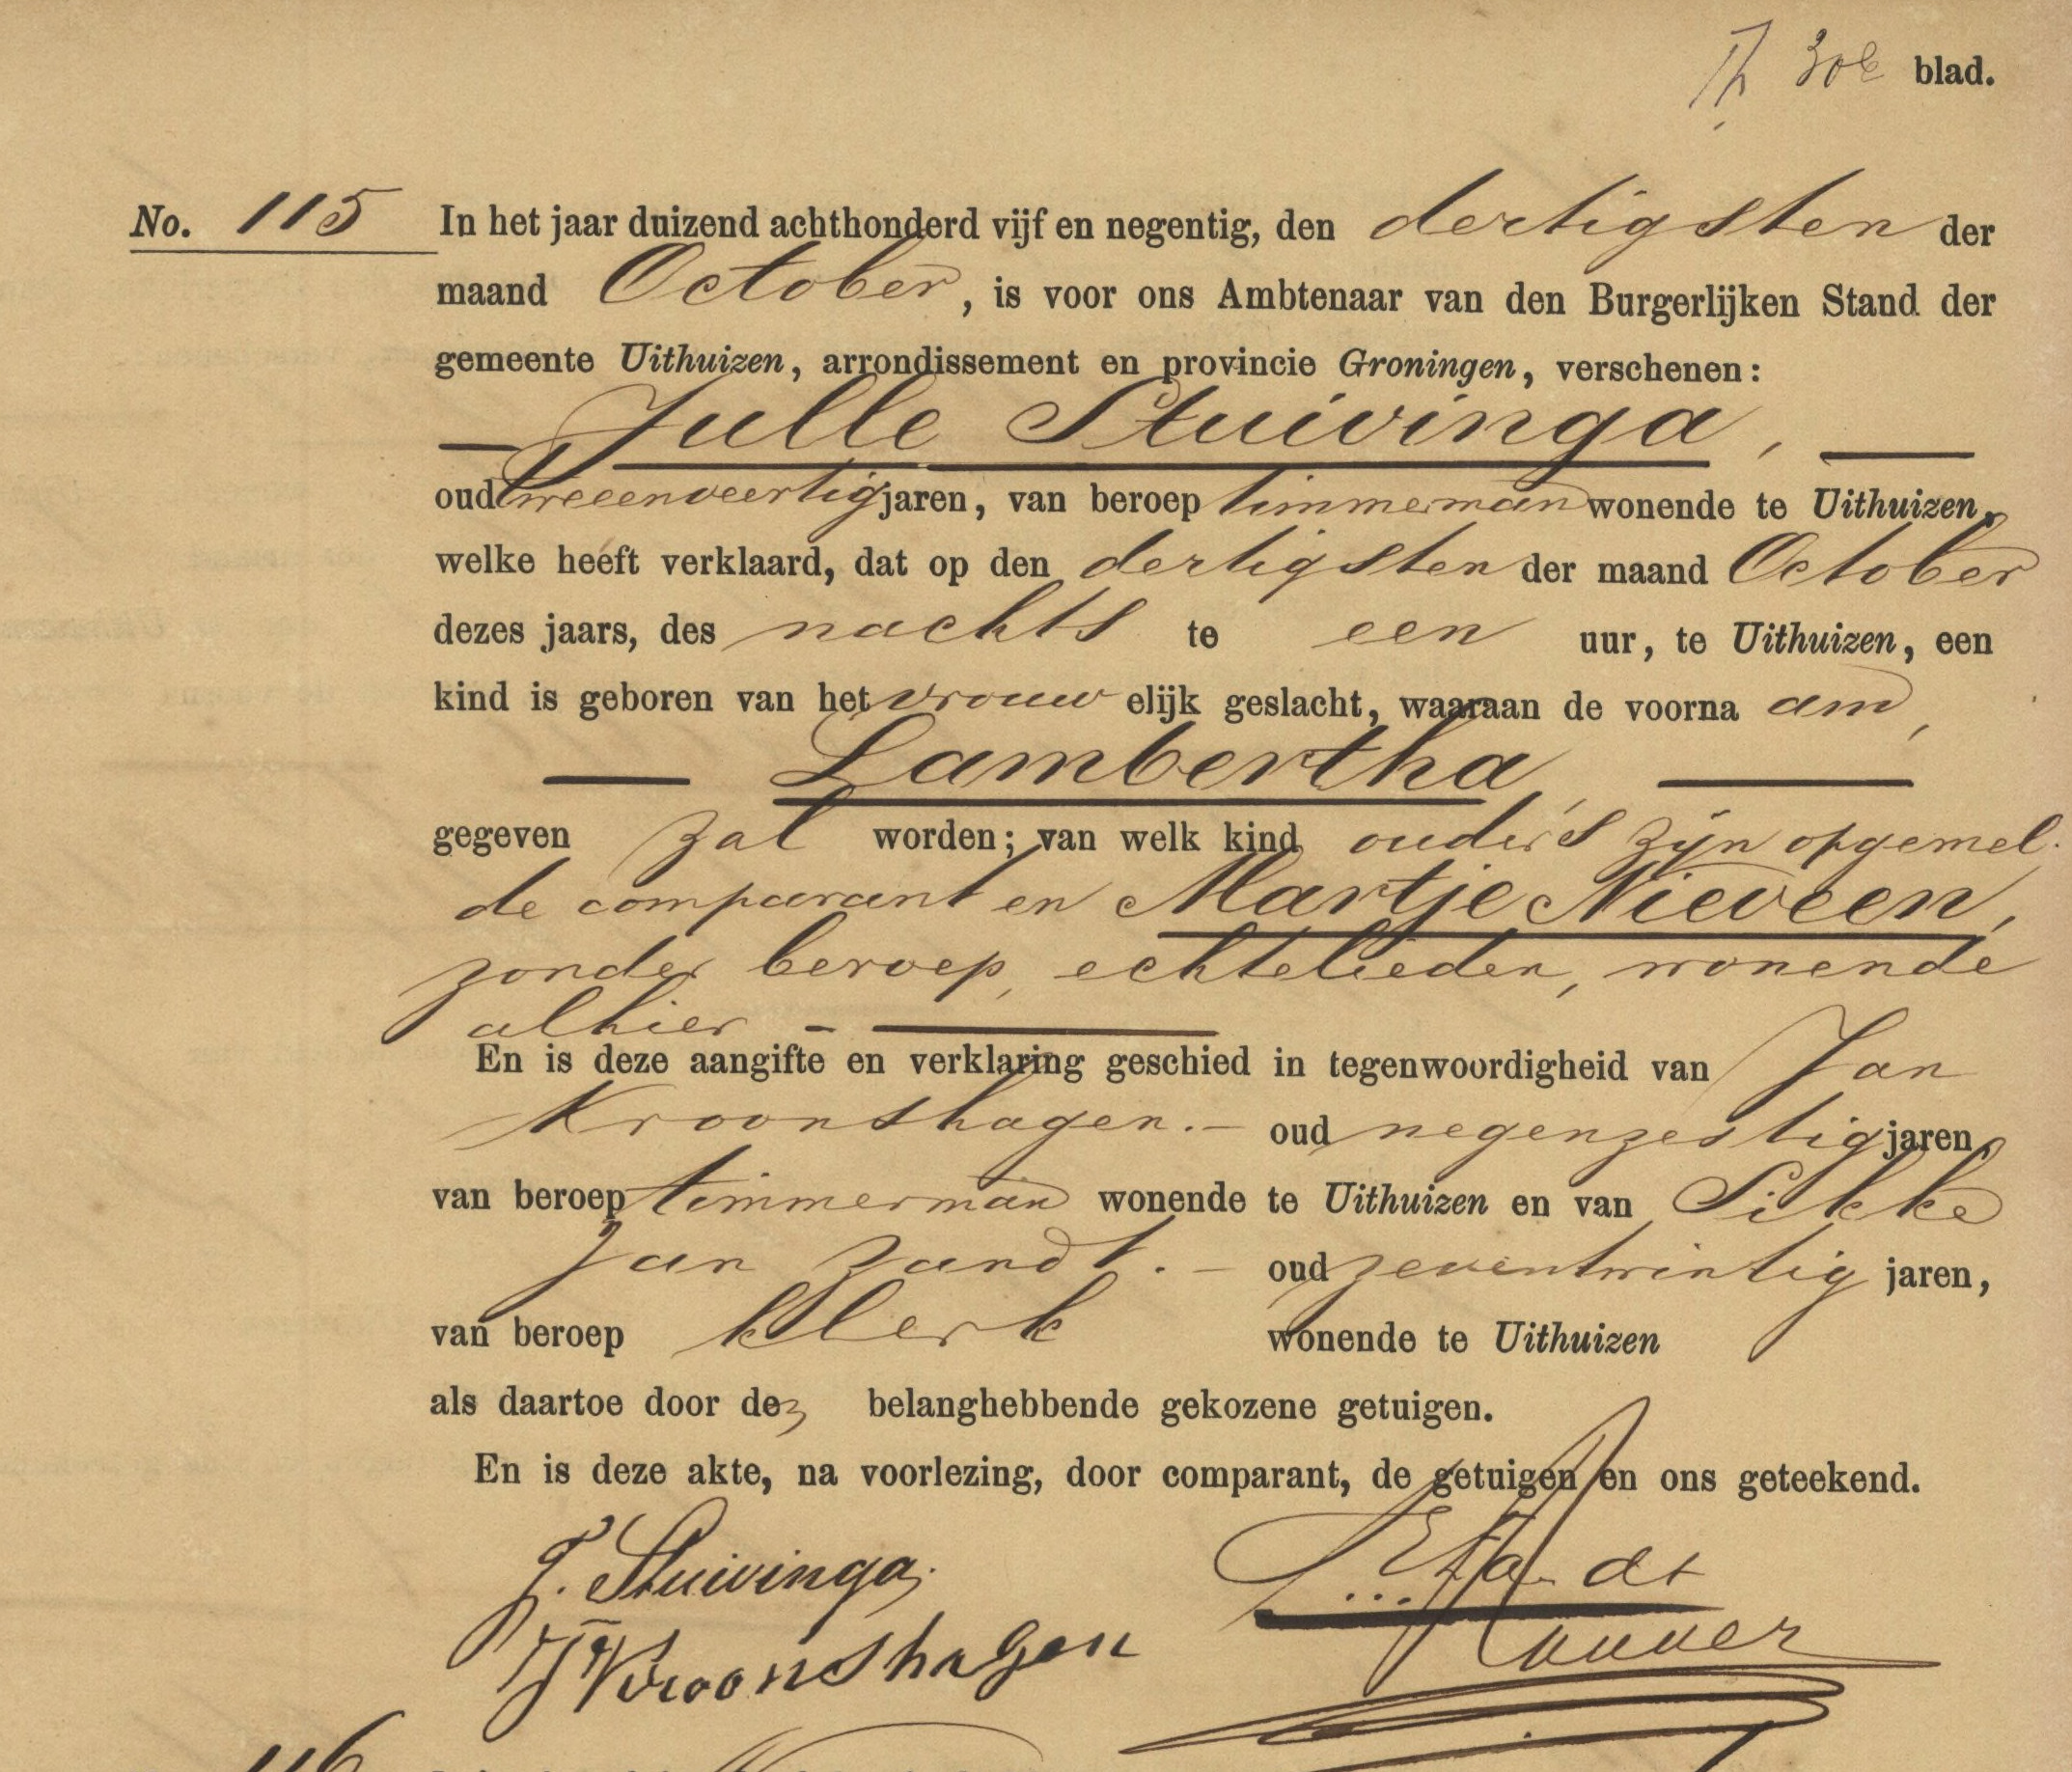 30e blad.
No. 115 In het jaar duizend achthonderd vijf en negentig, den dertigsten der
maand October, is voor ons Ambtenaar van den Burgerlijken Stand der
gemeente Uithuizen, arrondissement en provincie Groningen, verschenen:
— Julle Stuivinga, —
oud tweeenveertig jaren, van beroep timmerman wonende te Uithuizen,
welke heeft verklaard, dat op den dertigsten der maand October
dezes jaars, des nachts te een uur, te Uithuizen, een
kind is geboren van het vrouwelijk geslacht, waaraan de voornaam,
— Lambertha, —
gegeven zal worden; van welk kind ouders zijn opgemel-
de comparant en Martje Nieveen,
zonder beroep, echtelieden, wonende
alhier - —
En is deze aangifte en verklaring geschied in tegenwoordigheid van Jan
Kroonshagen. - oud negenzestig jaren,
van beroep timmerman wonende te Uithuizen en van Sikke
Jan Zandt. - oud zeventwintig jaren,
van beroep klerk wonende te Uithuizen
als daartoe door den belanghebbende gekozene getuigen.
En is deze akte, na voorlezing, door comparant, de getuigen en ons geteekend.
J. Stuivinga.
Kroonshagen
116